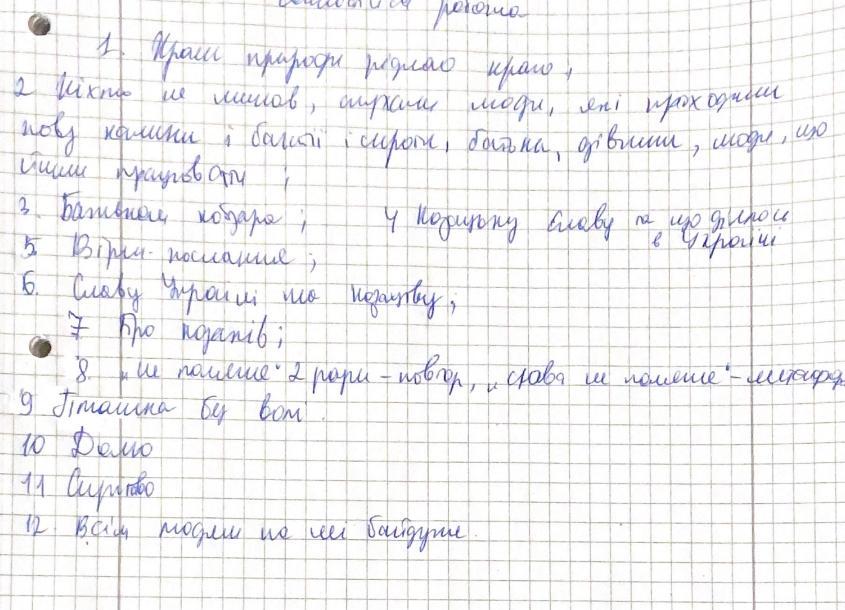 робота
1. Краси природи рідного краю;
2 Ніхто не минав, слухали люди, які проходили
повз каліки і багаті і сироти, батька, дівчини, люди, що
йшли працювати;
3. Багатьом кобзаря; 4 Козацьку славу та що діялось
в Україні
5. Вірш-послання;
6. Славу України та козацтву;
7 Про козаків;
8. „не поляже" 2 рази – повтор, „слава не поляже" – метафора
9 Пташка без волі.
10 Долю
11 Сирітство
12. Всім людям на неї байдуже.